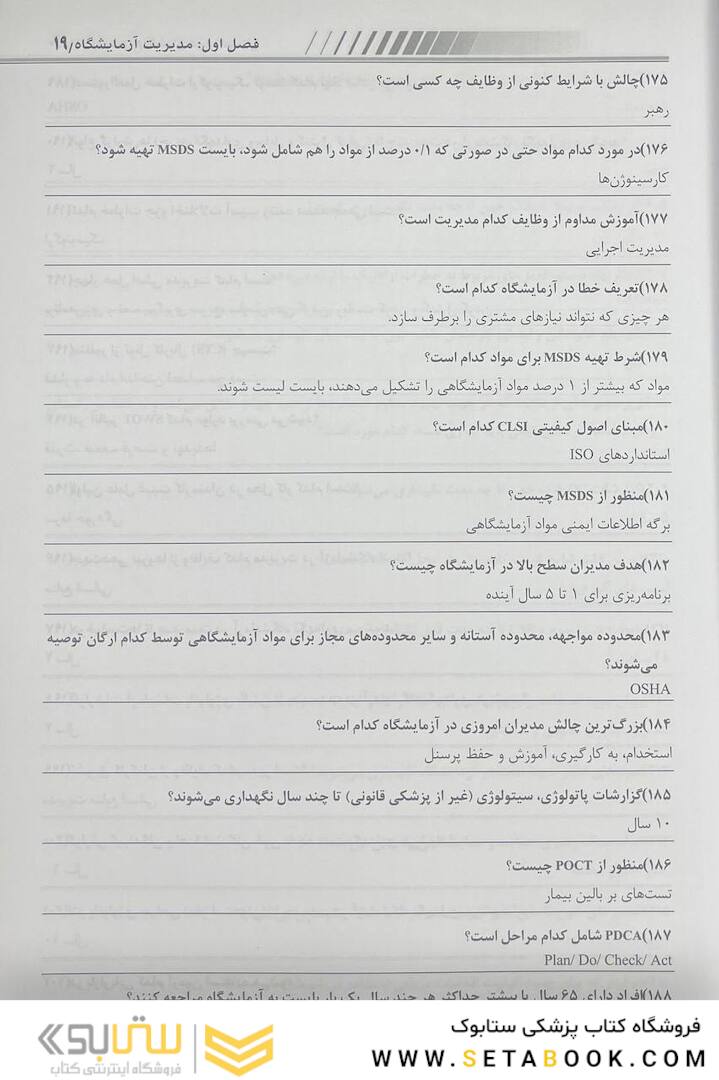 فصل اول: مدیریت آزمایشگاه/۱۹
۱۷۵)چالش با شرایط کنونی از وظایف چه کسی است؟
رهبر
۱۷۶)در مورد کدام مواد حتی در صورتی که ۰/۱ درصد از مواد را هم شامل شود، بایست MSDS تهیه شود؟
کارسینوژن‌ها
۱۷۷)آموزش مداوم از وظایف کدام مدیریت است؟
مدیریت اجرایی
۱۷۸)تعریف خطا در آزمایشگاه کدام است؟
هر چیزی که نتواند نیازهای مشتری را برطرف سازد.
۱۷۹)شرط تهیه MSDS برای مواد کدام است؟
مواد که بیشتر از ۱ درصد مواد آزمایشگاهی را تشکیل می‌دهند، بایست لیست شوند.
۱۸۰)مبنای اصول کیفیتی CLSI کدام است؟
استانداردهای ISO
۱۸۱)منظور از MSDS چیست؟
برگه اطلاعات ایمنی مواد آزمایشگاهی
۱۸۲)هدف مدیران سطح بالا در آزمایشگاه چیست؟
برنامه‌ریزی برای ۱ تا ۵ سال آینده
۱۸۳)محدوده مواجهه، محدوده آستانه و سایر محدوده‌های مجاز برای مواد آزمایشگاهی توسط کدام ارگان توصیه
می‌شوند؟
OSHA
۱۸۴)بزرگ‌ترین چالش مدیران امروزی در آزمایشگاه کدام است؟
استخدام، به کارگیری، آموزش و حفظ پرسنل
۱۸۵)گزارشات پاتولوژی، سیتولوژی (غیر از پزشکی قانونی) تا چند سال نگهداری می‌شوند؟
۱۰ سال
۱۸۶)منظور از POCT چیست؟
تست‌های بر بالین بیمار
۱۸۷)PDCA شامل کدام مراحل است؟
Plan/ Do/ Check/ Act
۱۸۸)افراد دارای ۶۵ سال یا بیشتر حداکثر هر چند سال یک بار بایست به آزمایشگاه مراجعه کنند؟
فروشگاه کتاب پزشکی ستابوک
WWW.SETABOOK.COM
ستابوک
فروشگاه اینترنتی کتاب